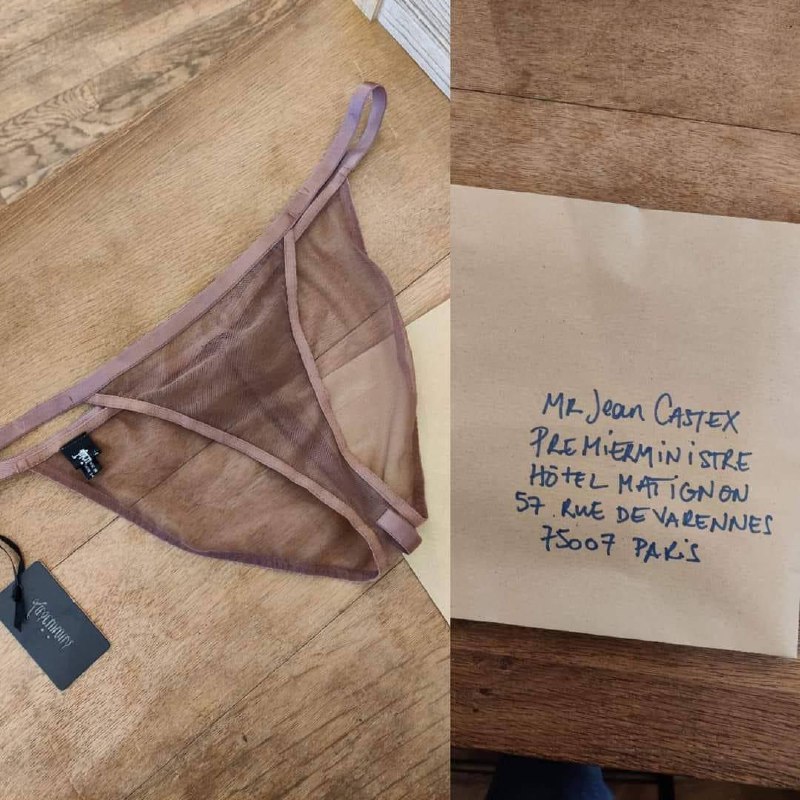 Mr Jean CASTEX
PREMIERMINISTRE
HÔTEL MATIGNON
57 RUE DE VARENNES
75007 PARIS